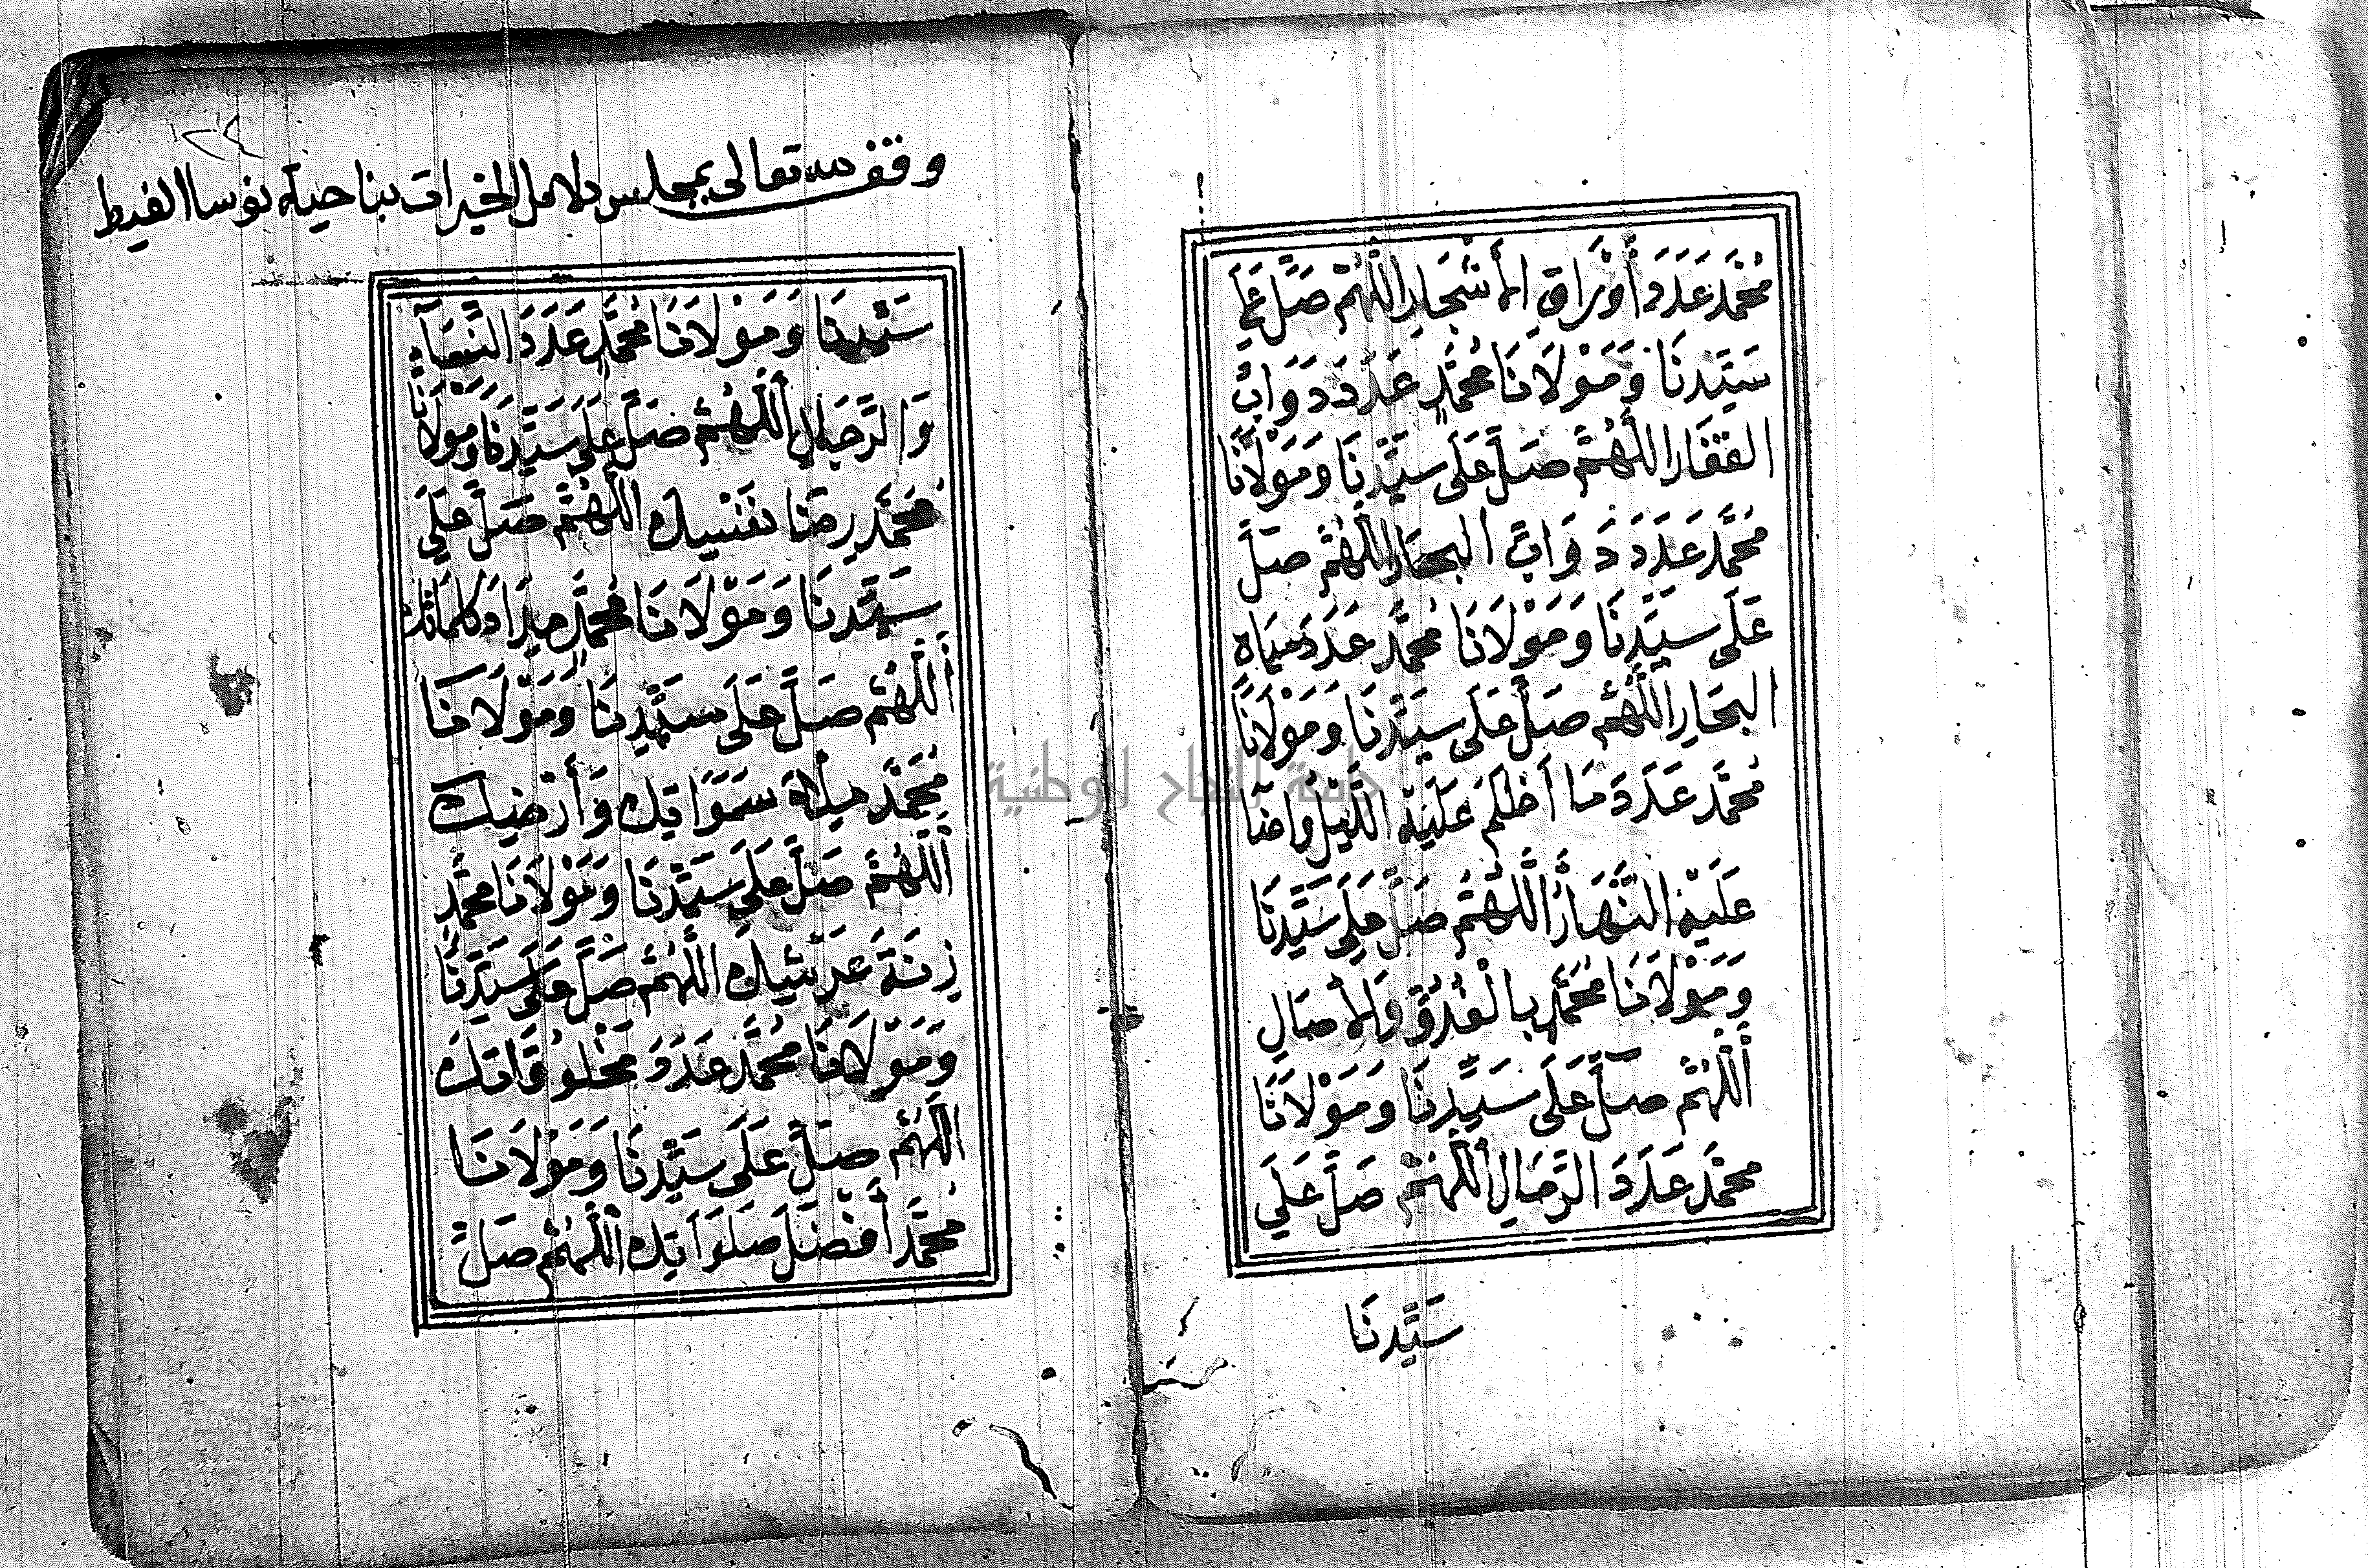 مُحَمَّدٍ عَدَدَ أَوْرَاقِ الْأَشْجَارِ اللَّهُمَّ صَلِّ عَلَى
سَيِّدِنَا وَمَوْلَانَا مُحَمَّدٍ عَدَدَ دَوَابِّ
القِفَارِ اللَّهُمَّ صَلِّ عَلَى سَيِّدِنَا وَمَوْلَانَا
مُحَمَّدٍ عَدَدَ دَوَابِّ البِحَارِ اللَّهُمَّ صَلِّ
عَلَى سَيِّدِنَا وَمَوْلَانَا مُحَمَّدٍ عَدَدَ مِيَاهِ
البِحَارِ اللَّهُمَّ صَلِّ عَلَى سَيِّدِنَا وَمَوْلَانَا
مُحَمَّدٍ عَدَدَ مَا أَظْلَمَ عَلَيْهِ اللَّيْلُ واضَا
عَلَيْهِ النَّهَارُ اللَّهُمَّ صَلِّ عَلَى سَيِّدِنَا
وَمَوْلَانَا مُحَمَّدٍ بِالْغُدُوِّ وَالْأَصَالِ
اللَّهُمَّ صَلِّ عَلَى سَيِّدِنَا وَمَوْلَانَا
مُحَمَّدٍ عَدَدَ الرِّمَالِ اللَّهُمَّ صَلِّ عَلَى
سَيِّدِنَا
٢٤
وقف لله تعالى بمجلس دلايل الخيرات بناحية نوسا الغيط
سَيِّدِنَا وَمَوْلَانَا مُحَمَّدٍ عَدَدَ النِّسَاءِ
وَالرِّجَالِ اللَّهُمَّ صَلِّ عَلَى سَيِّدِنَا وَمَوْلَانَا
مُحَمَّدٍ رِضَا نَفْسِكَ اللَّهُمَّ صَلِّ عَلَى
سَيِّدِنَا وَمَوْلَانَا مُحَمَّدٍ مِدَادَ كَلِمَاتِكَ
اللَّهُمَّ صَلِّ عَلَى سَيِّدِنَا وَمَوْلَانَا
مُحَمَّدٍ مِلْأَ سَمَوَاتِكَ وَأَرْضِكَ
اللَّهُمَّ صَلِّ عَلَى سَيِّدِنَا وَمَوْلَانَا مُحَمَّدٍ
زِنَةَ عَرْشِكَ اللَّهُمَّ صَلِّ عَلَى سَيِّدِنَا
وَمَوْلَانَا مُحَمَّدٍ عَدَدَ مَخْلُوقَاتِكَ
اللَّهُمَّ صَلِّ عَلَى سَيِّدِنَا وَمَوْلَانَا
مُحَمَّدٍ أَفْضَلَ صَلَوَاتِكَ اللَّهُمَّ صَلِّ
جامعة النجاح الوطنية